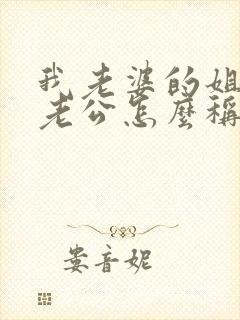 我老婆的姐
老公怎麼稱
娄音妮